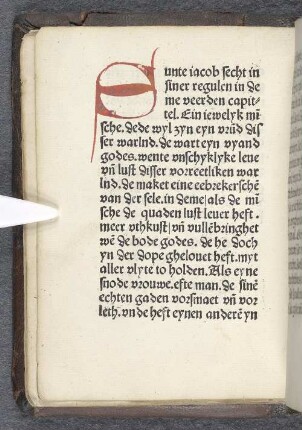 Sunte iacob secht in
siner regulen in de
me veerden capit⸗
tel. Ein iewelyk mī
sche. dede wyl zyn eyn vrūd dis
ser warlnd. de wart eyn vyand
godes. wente vnschyklyke leue
vn̄ lust disser vorreetliken war
lnd. de maket eine eebrekerschē
van der sele. in deme| als de mī
sche de quaden lust leuer heft.
meer vthkust| vn̄ vullēbringhet
wē de bode godes. de he doch
yn der dope ghelouet heft. myt
aller vlyte to holden. Als eyne
snode vrouwe. efte man. de sinē
echten gaden vorsmaet vn̄ vor
leth. vn de heft eynen anderē yn